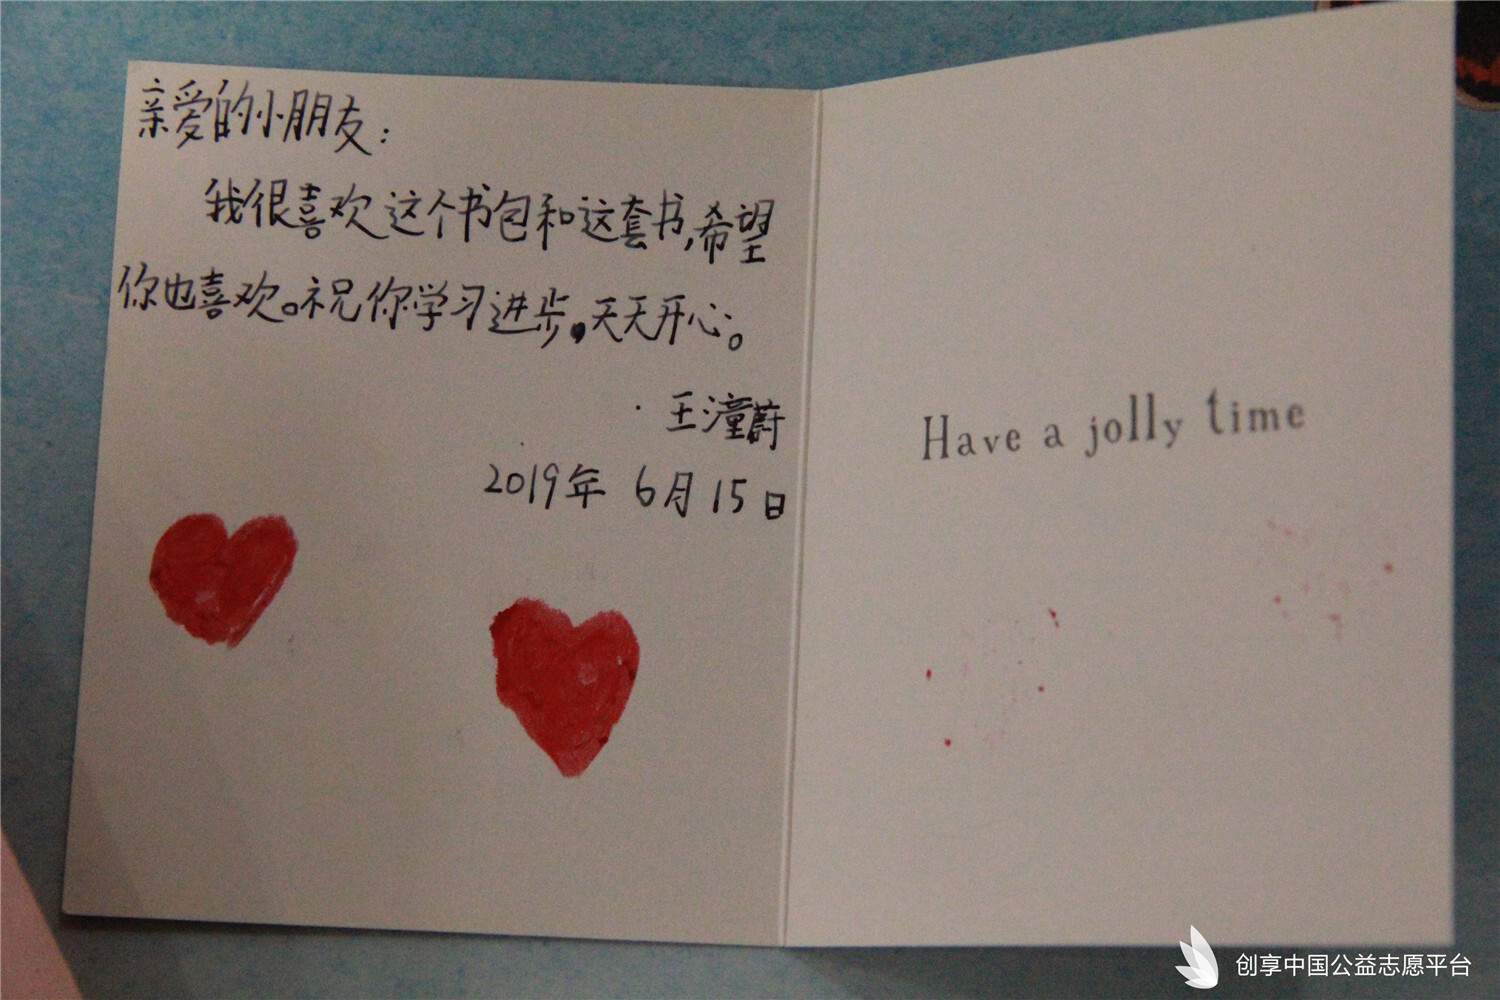 亲爱的小朋友:
我很喜欢这个书包和这套书,希望
你也喜欢。祝你学习进步,天天开心。
王潼蔚
2019年 6月15日
Have a jolly time
创享中国公益志愿平台